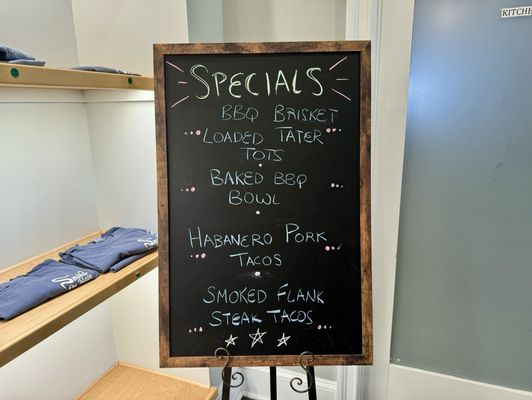 SPECIALS
BBQ BRISKET
LOADED TATER
TOTS
BAKED BBQ
BOWL
HABANERO PORK
TACOS
SMOKED FLANK
STEAK TACOS
KITCHE